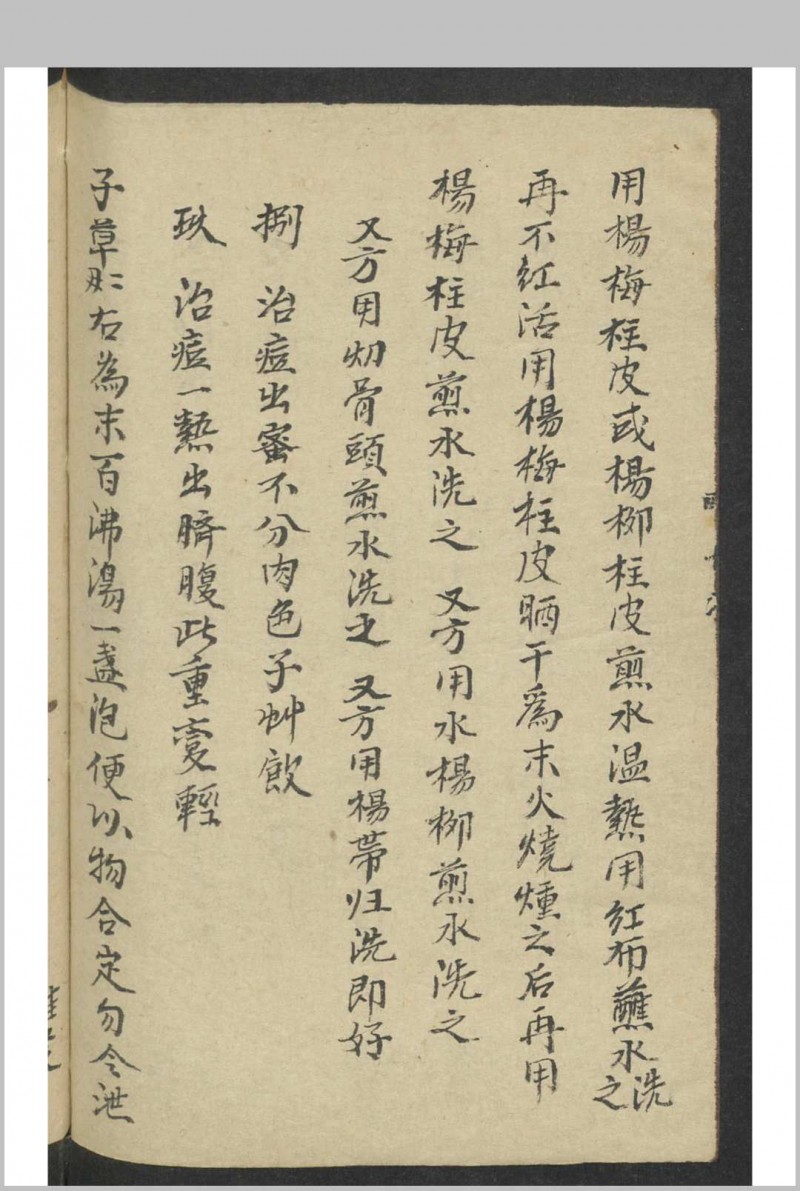 用楊梅柱皮或楊柳柱皮煎水温熱用紅布蘸水洗之
再不紅活用楊梅柱皮晒干爲末火燒燻之后再用
楊梅柱皮煎水洗之 又方用水楊柳煎水洗之
又方用刼骨頭煎水洗之 又方用楊帶归洗即好
捌 治痘出蜜不分肉色子艸飲
玖 治痘一熱出臍腹此重变輕
子草 右為末百沸湯一盞泡便以物合定勿令泄